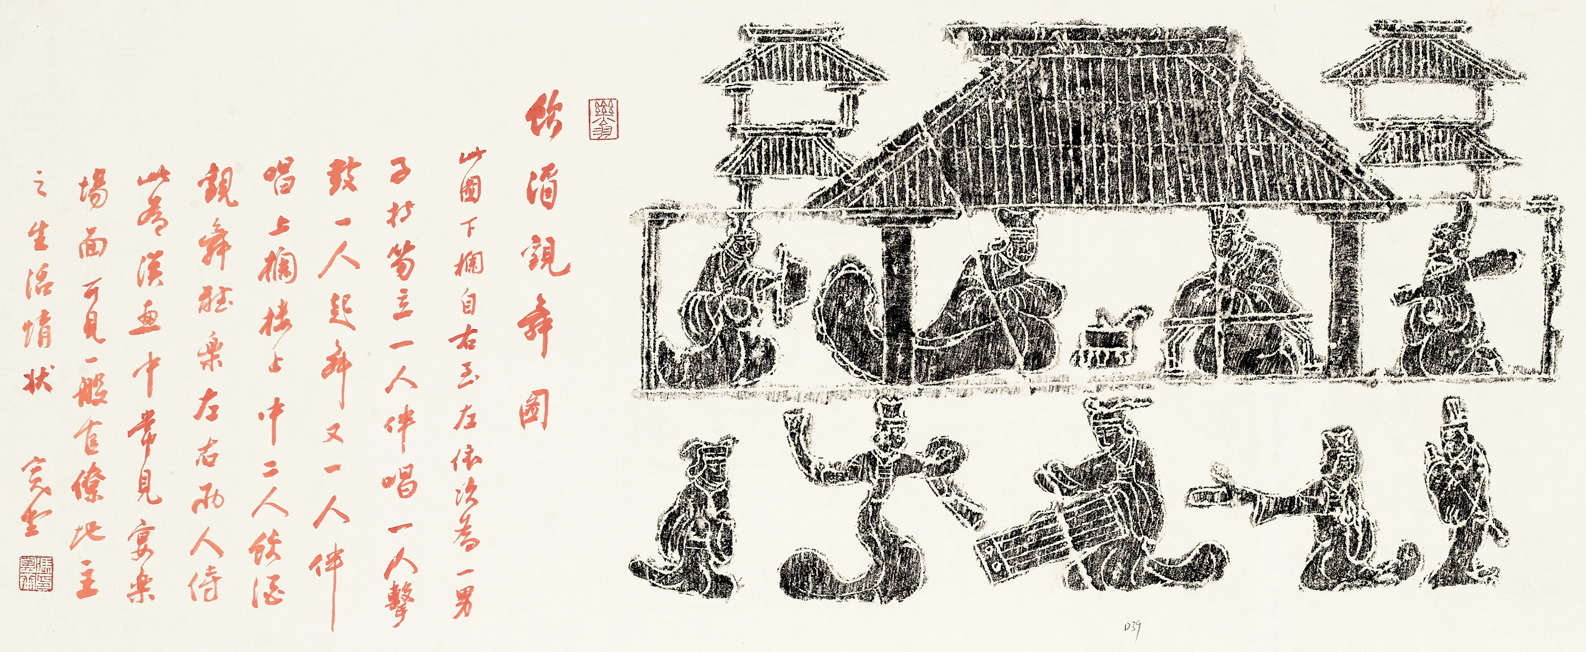 飲酒觀舞圖
此圖下欄自右至左依次為一男
子持笏立一人伴唱一人擊
鼓一人起舞又一人伴
唱上欄樓上中二人飲酒
觀舞聽樂左右兩人侍
此為漢畫中常見宴樂
場面可見一般官僚地主
之生活情狀 寬堂
D39